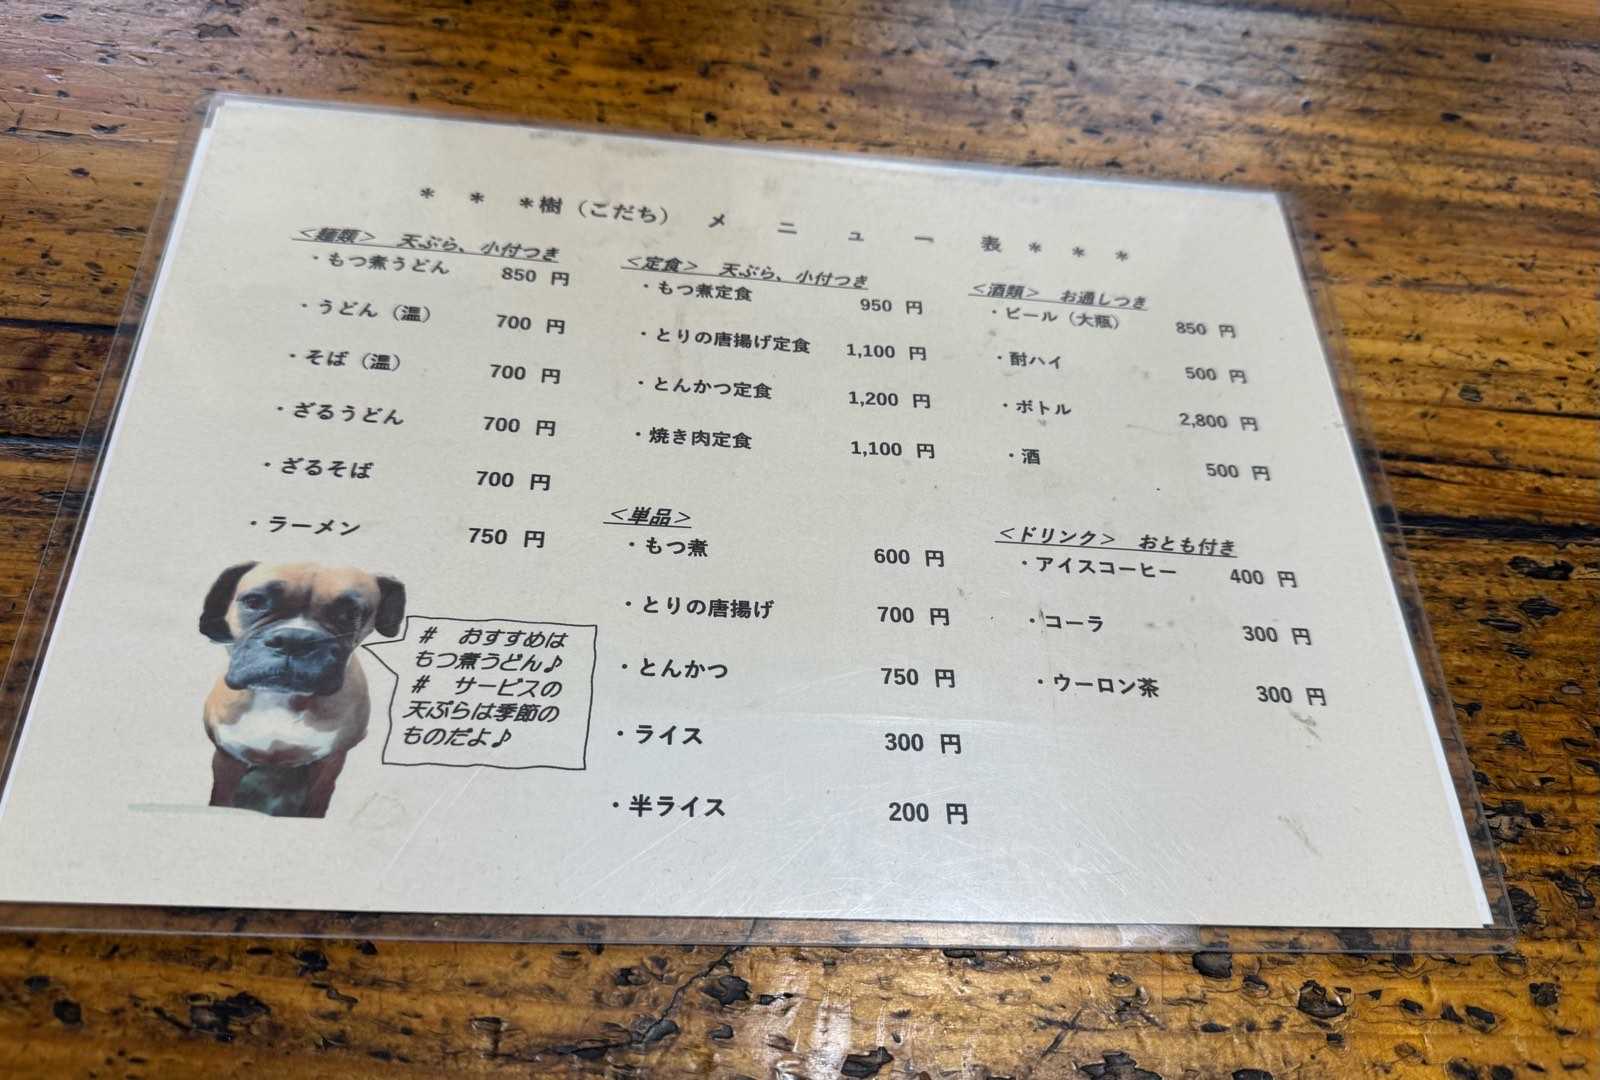 ＊ ＊ ＊樹（こだち） メ ニ ュ ー 表＊ ＊ ＊
＜麺類＞ 天ぷら、小付つき
・もつ煮うどん 850 円
・うどん（温） 700 円
・そば（温） 700 円
・ざるうどん 700 円
・ざるそば 700 円
・ラーメン 750 円
# おすすめは
もつ煮うどん♪
# サービスの
天ぷらは季節の
ものだよ♪
＜定食＞ 天ぷら、小付つき
・もつ煮定食 950 円
・とりの唐揚げ定食 1,100 円
・とんかつ定食 1,200 円
・焼き肉定食 1,100 円
＜単品＞
・もつ煮 600 円
・とりの唐揚げ 700 円
・とんかつ 750 円
・ライス 300 円
・半ライス 200 円
＜酒類＞ お通しつき
・ビール（大瓶） 850 円
・酎ハイ 500 円
・ボトル 2,800 円
・酒 500 円
＜ドリンク＞ おとも付き
・アイスコーヒー 400 円
・コーラ 300 円
・ウーロン茶 300 円